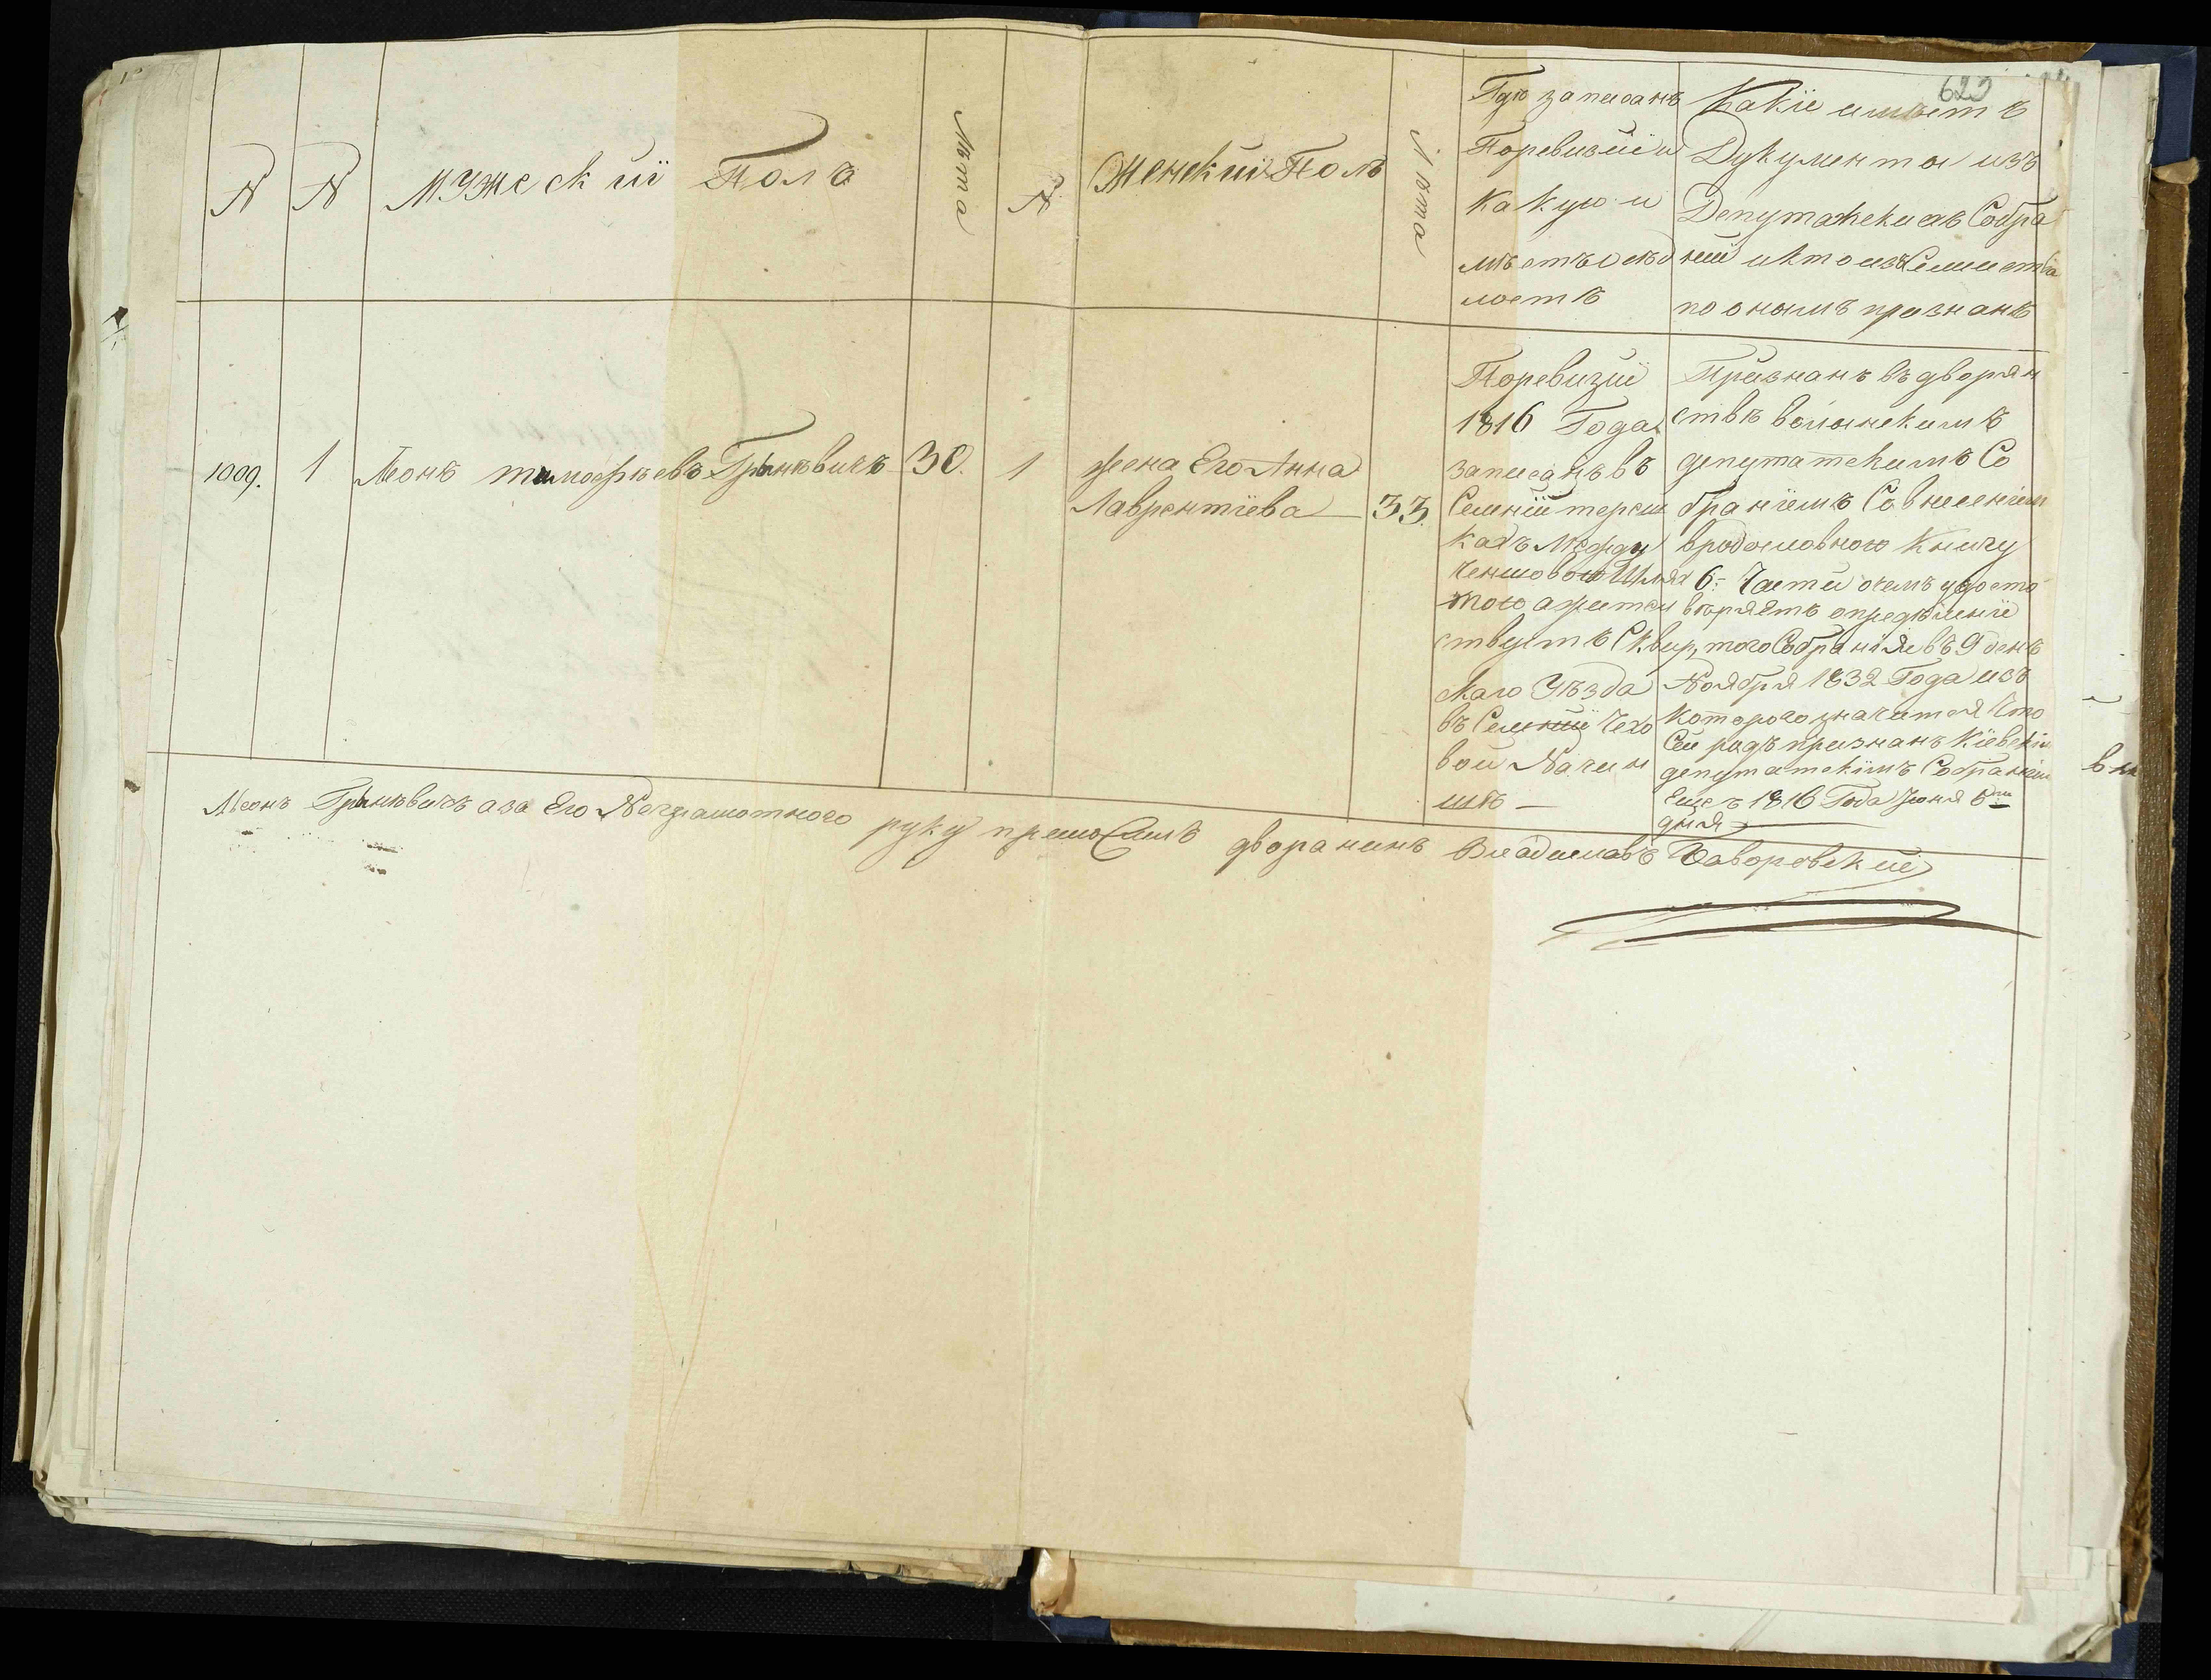 623
N
N
Мужескій Полъ
Лѣта
N
Женскій Полъ
Лѣта
Гдѣ записанъ
Поревизіи и
какую и
мѣетъ осѣд
лость
Какіе имѣетъ
Дукументы изъ
Депутатскихъ Собра
ній и кто изъ Семейства
по онымъ признанъ
1009.
1
Леонъ тимофѣевъ Грынѣвичъ
30.
1
жена Его Анна
Лаврентіева
33.
Поревизіи
1816 Года
записанъ въ
Селеніи тереш
кахъ между
чиншовою Шлях
тою а жител
ствуетъ Сквир,
скаго Уѣзда
въ Селеніи Чехо
вой Начин
шѣ —
Признанъ въ дворян
ствѣ волынскимъ
депутатскимъ Со
браніемъ Совнесеніем
вродословною Книгу
6: Части очемъ удосто
вѣряетъ опредѣленіе
того Собранія въ 9 день
Ноября 1832 Года изъ
которого значится что
Сей родъ признанъ Кіевским
депутатскімъ Собраніем
Еще въ 1816 Года Іюня 6го
дня
Леонъ Грынѣвичъ а за Его Неграмотного руку приложилъ дворанинъ Владиславъ Баворовскій